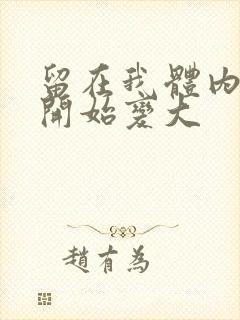 留在我體內
開始變大
趙有為